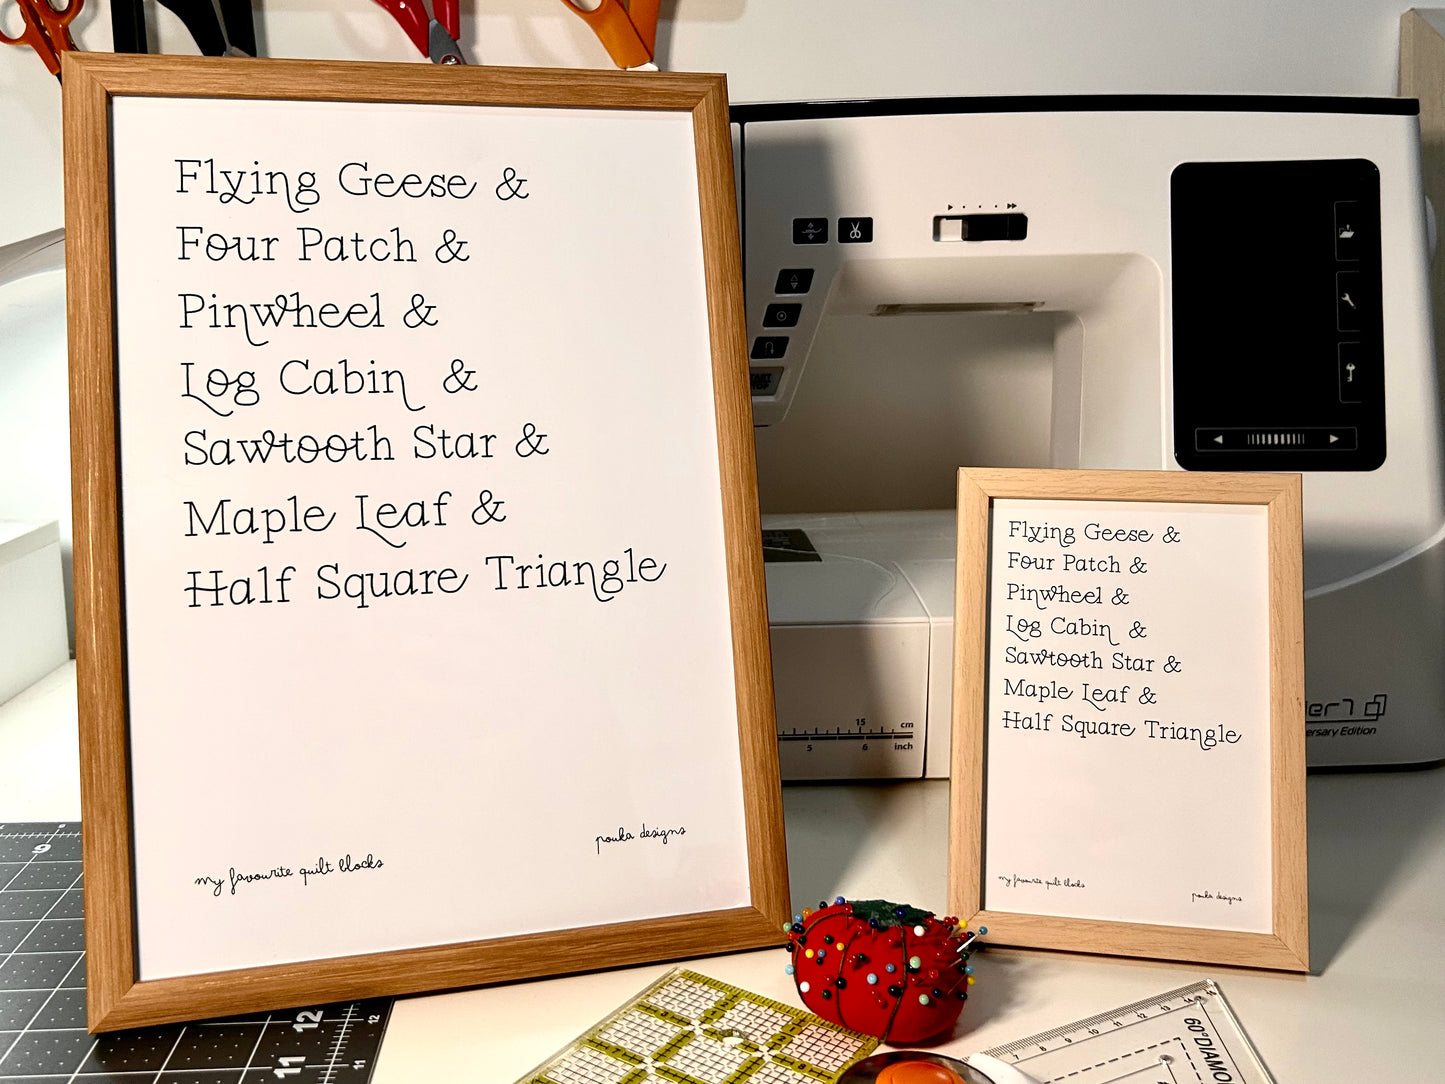 Flying Geese &
Four Patch &
Pinwheel &
Log Cabin &
Sawtooth Star &
Maple Leaf &
Half Square Triangle
pouka designs
my favourite quilt blocks
START
STOP
15 cm
5 6 inch
Flying Geese &
Four Patch &
Pinwheel &
Log Cabin &
Sawtooth Star &
Maple Leaf &
Half Square Triangle
my favourite quilt blocks
pouka designs
ier 7
ersary Edition
9
12
12
11
11
60° DIAMO